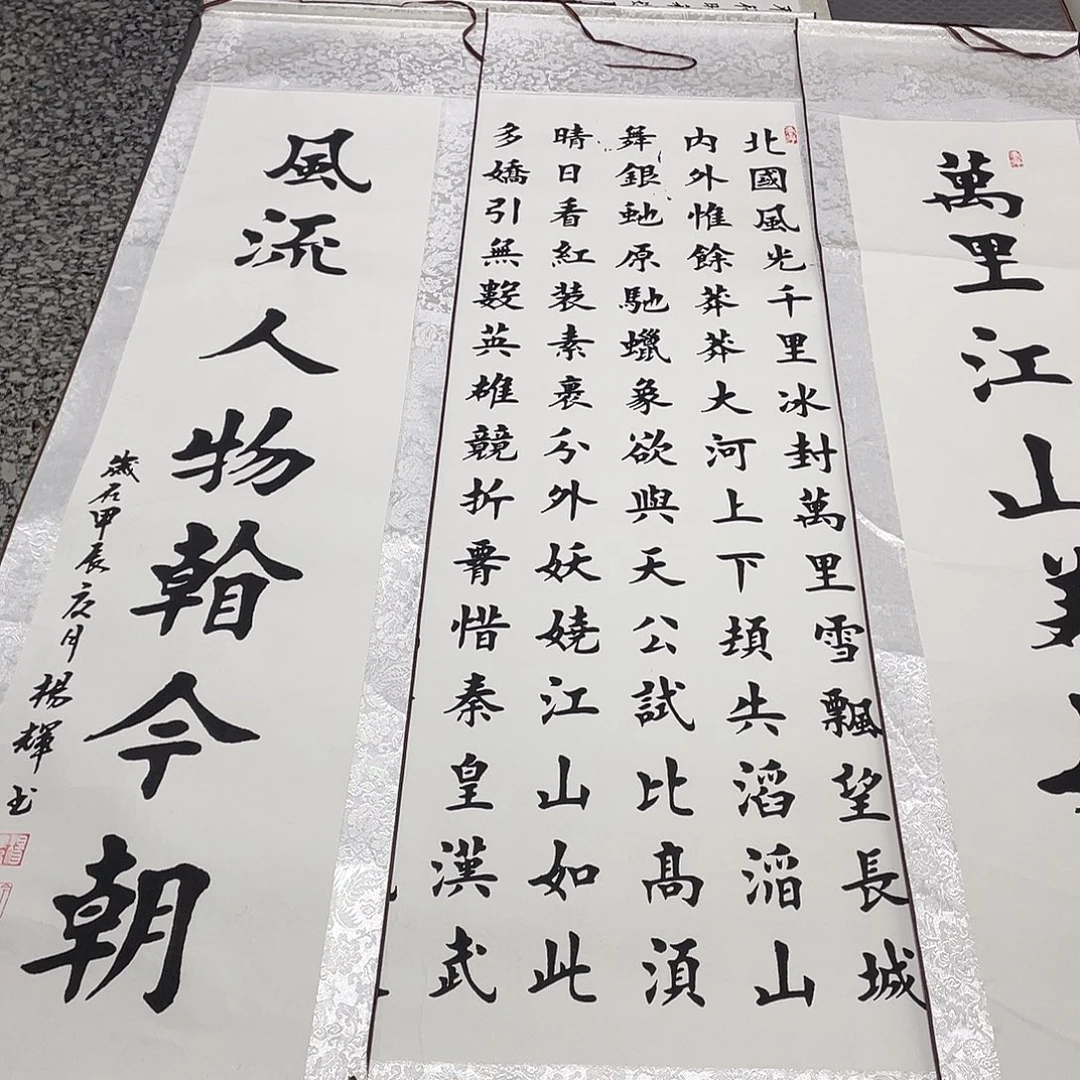 萬里江山
北國風光千里冰封萬里雪飄望長城
內外惟餘莽莽大河上下頓失滔滔山
舞銀虵原馳蠟象欲與天公試比髙須
晴日看紅装素裹分外妖嬈江山如此
多嬌引無數英雄競折腰惜秦皇漢武
風流人物看今朝
歲在甲辰夏月楊輝书